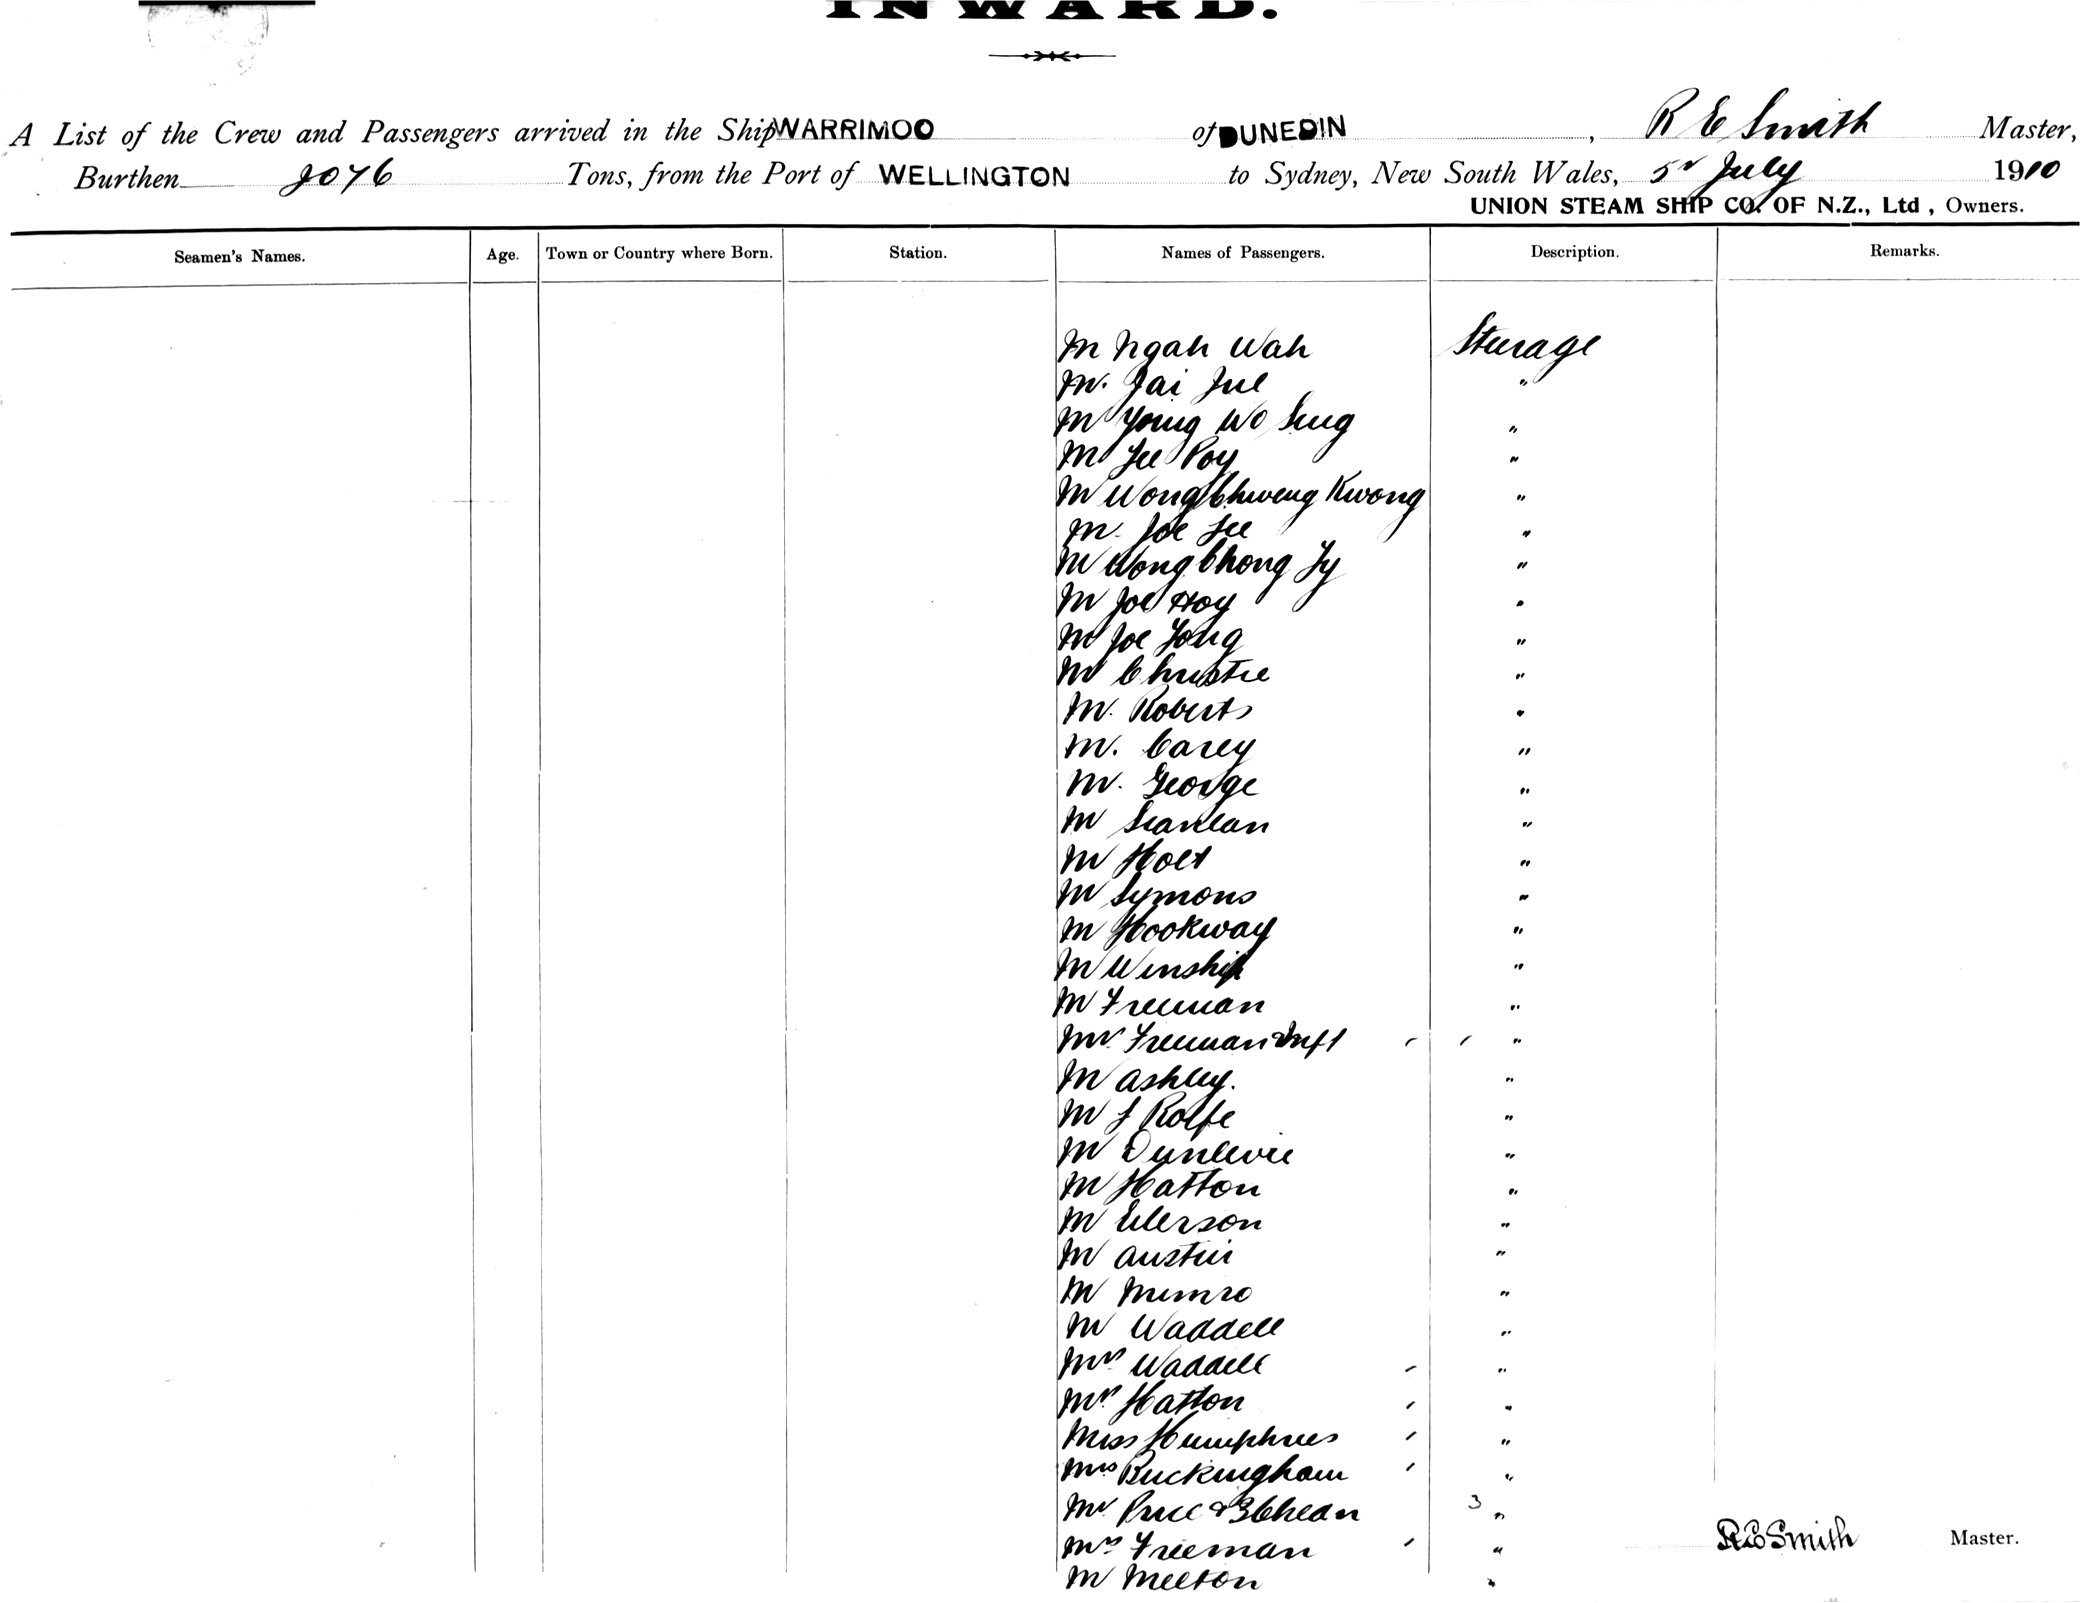 INWARD.
A List of the Crew and Passengers arrived in the Ship WARRIMOO of DUNEDIN, R E Smith Master,
Burthen 2076 Tons, from the Port of WELLINGTON to Sydney, New South Wales, 5th July 1910
UNION STEAM SHIP CO. OF N.Z., Ltd, Owners.
Seamen's Names. Age. Town or Country where Born. Station. Names of Passengers. Description. Remarks.
M Ngah Wah Steerage
M. Jai Jue "
M Young Wo Sing "
M Lee Poy "
M Wong Chweng Kwong "
M. Joe Lee "
M Wong Chong "
M Joe Hoy "
M Joe Tong "
M Christie "
M. Roberts "
M. Carey "
M. George "
M Scanlan "
M Holt "
M Symons "
M Hookway "
M Winship "
M Freeman "
Mrs Freeman & Inft "
M Ashley. "
M J Rolfe "
M Dunlevie "
M Hatton "
M "
M Austin "
M Munro "
M Waddell "
Mrs Waddell "
Mrs Hatton "
Miss Humphries "
Mrs Buckingham "
Mr Price & 3 Chldn 3 "
Mrs Freeman "
M Melton "
R E Smith Master.